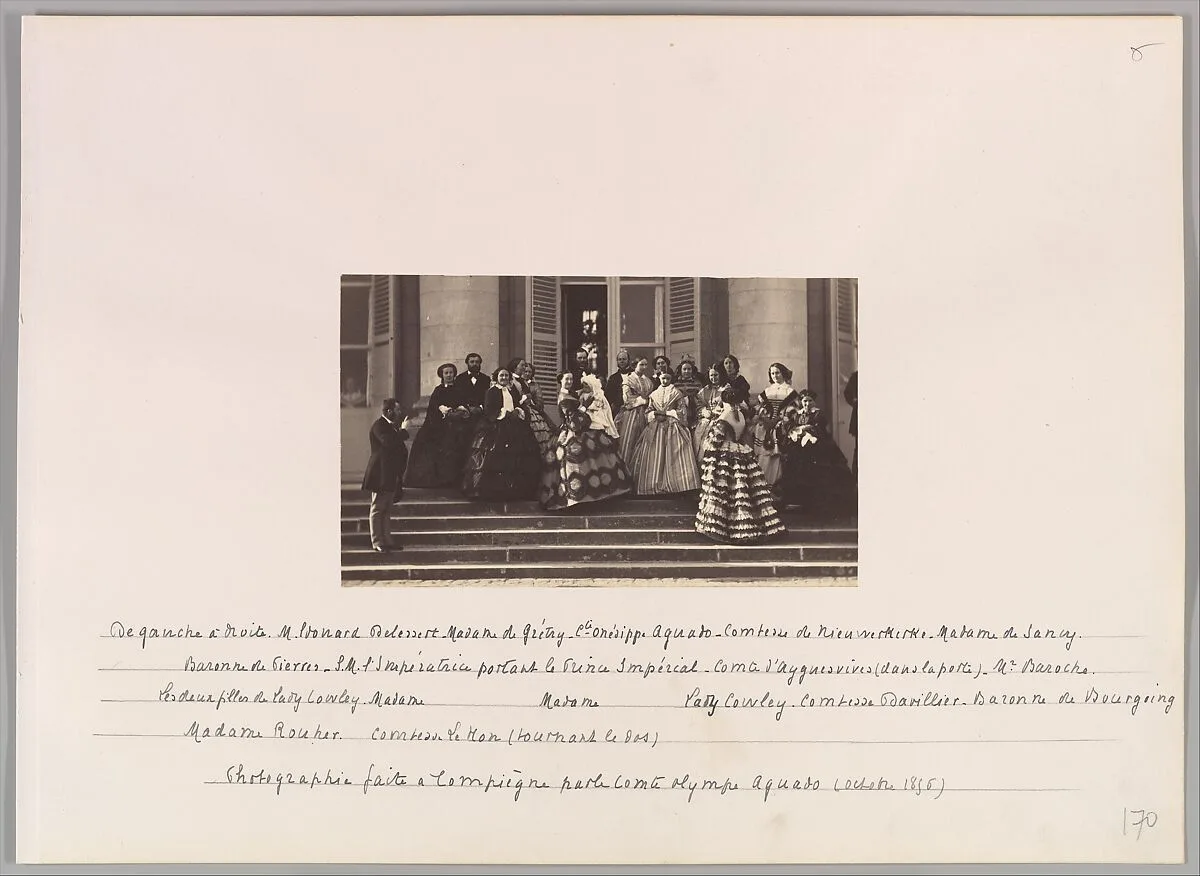 8
De gauche à droite. M. Edouard Delessert - Madame de Grétry - Cte Onésippe Aguado - Comtesse de Nieuwerkerke - Madame de Sancy.
Baronne de Pierres - S.M. l'Impératrice portant le Prince Impérial - Comte d'Ayguesvives (dans la porte) - Mr Baroche.
Les deux filles de Lady Cowley. Madame Madame Lady Cowley. Comtesse Davillier - Baronne de Bourgoing
Madame Rouher. Comtesse Le Hon (tournant le dos)
Photographie faite à Compiègne par le Comte Olympe Aguado (octobre 1856)
170